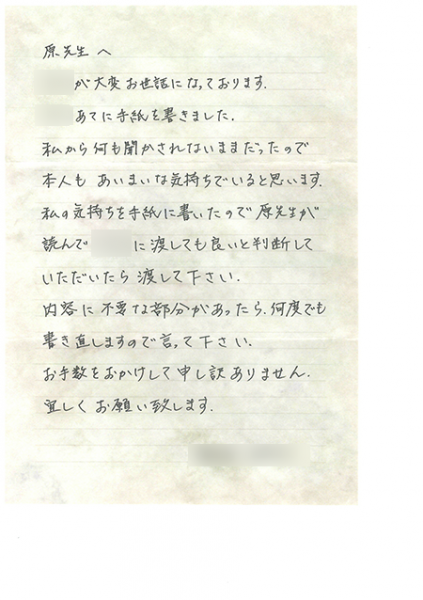 原先生へ
が大変お世話になっております.
あてに手紙を書きました.
私から何も聞かされないままだったので
本人も あいまいな気持ちでいると思います.
私の気持ちを手紙に書いたので原先生が
読んで に渡しても良いと判断して
いただいたら 渡して下さい.
内容に不要な部分があったら.何度でも
書き直しますので言って下さい.
お手数をおかけして申し訳ありません.
宜しくお願い致します.